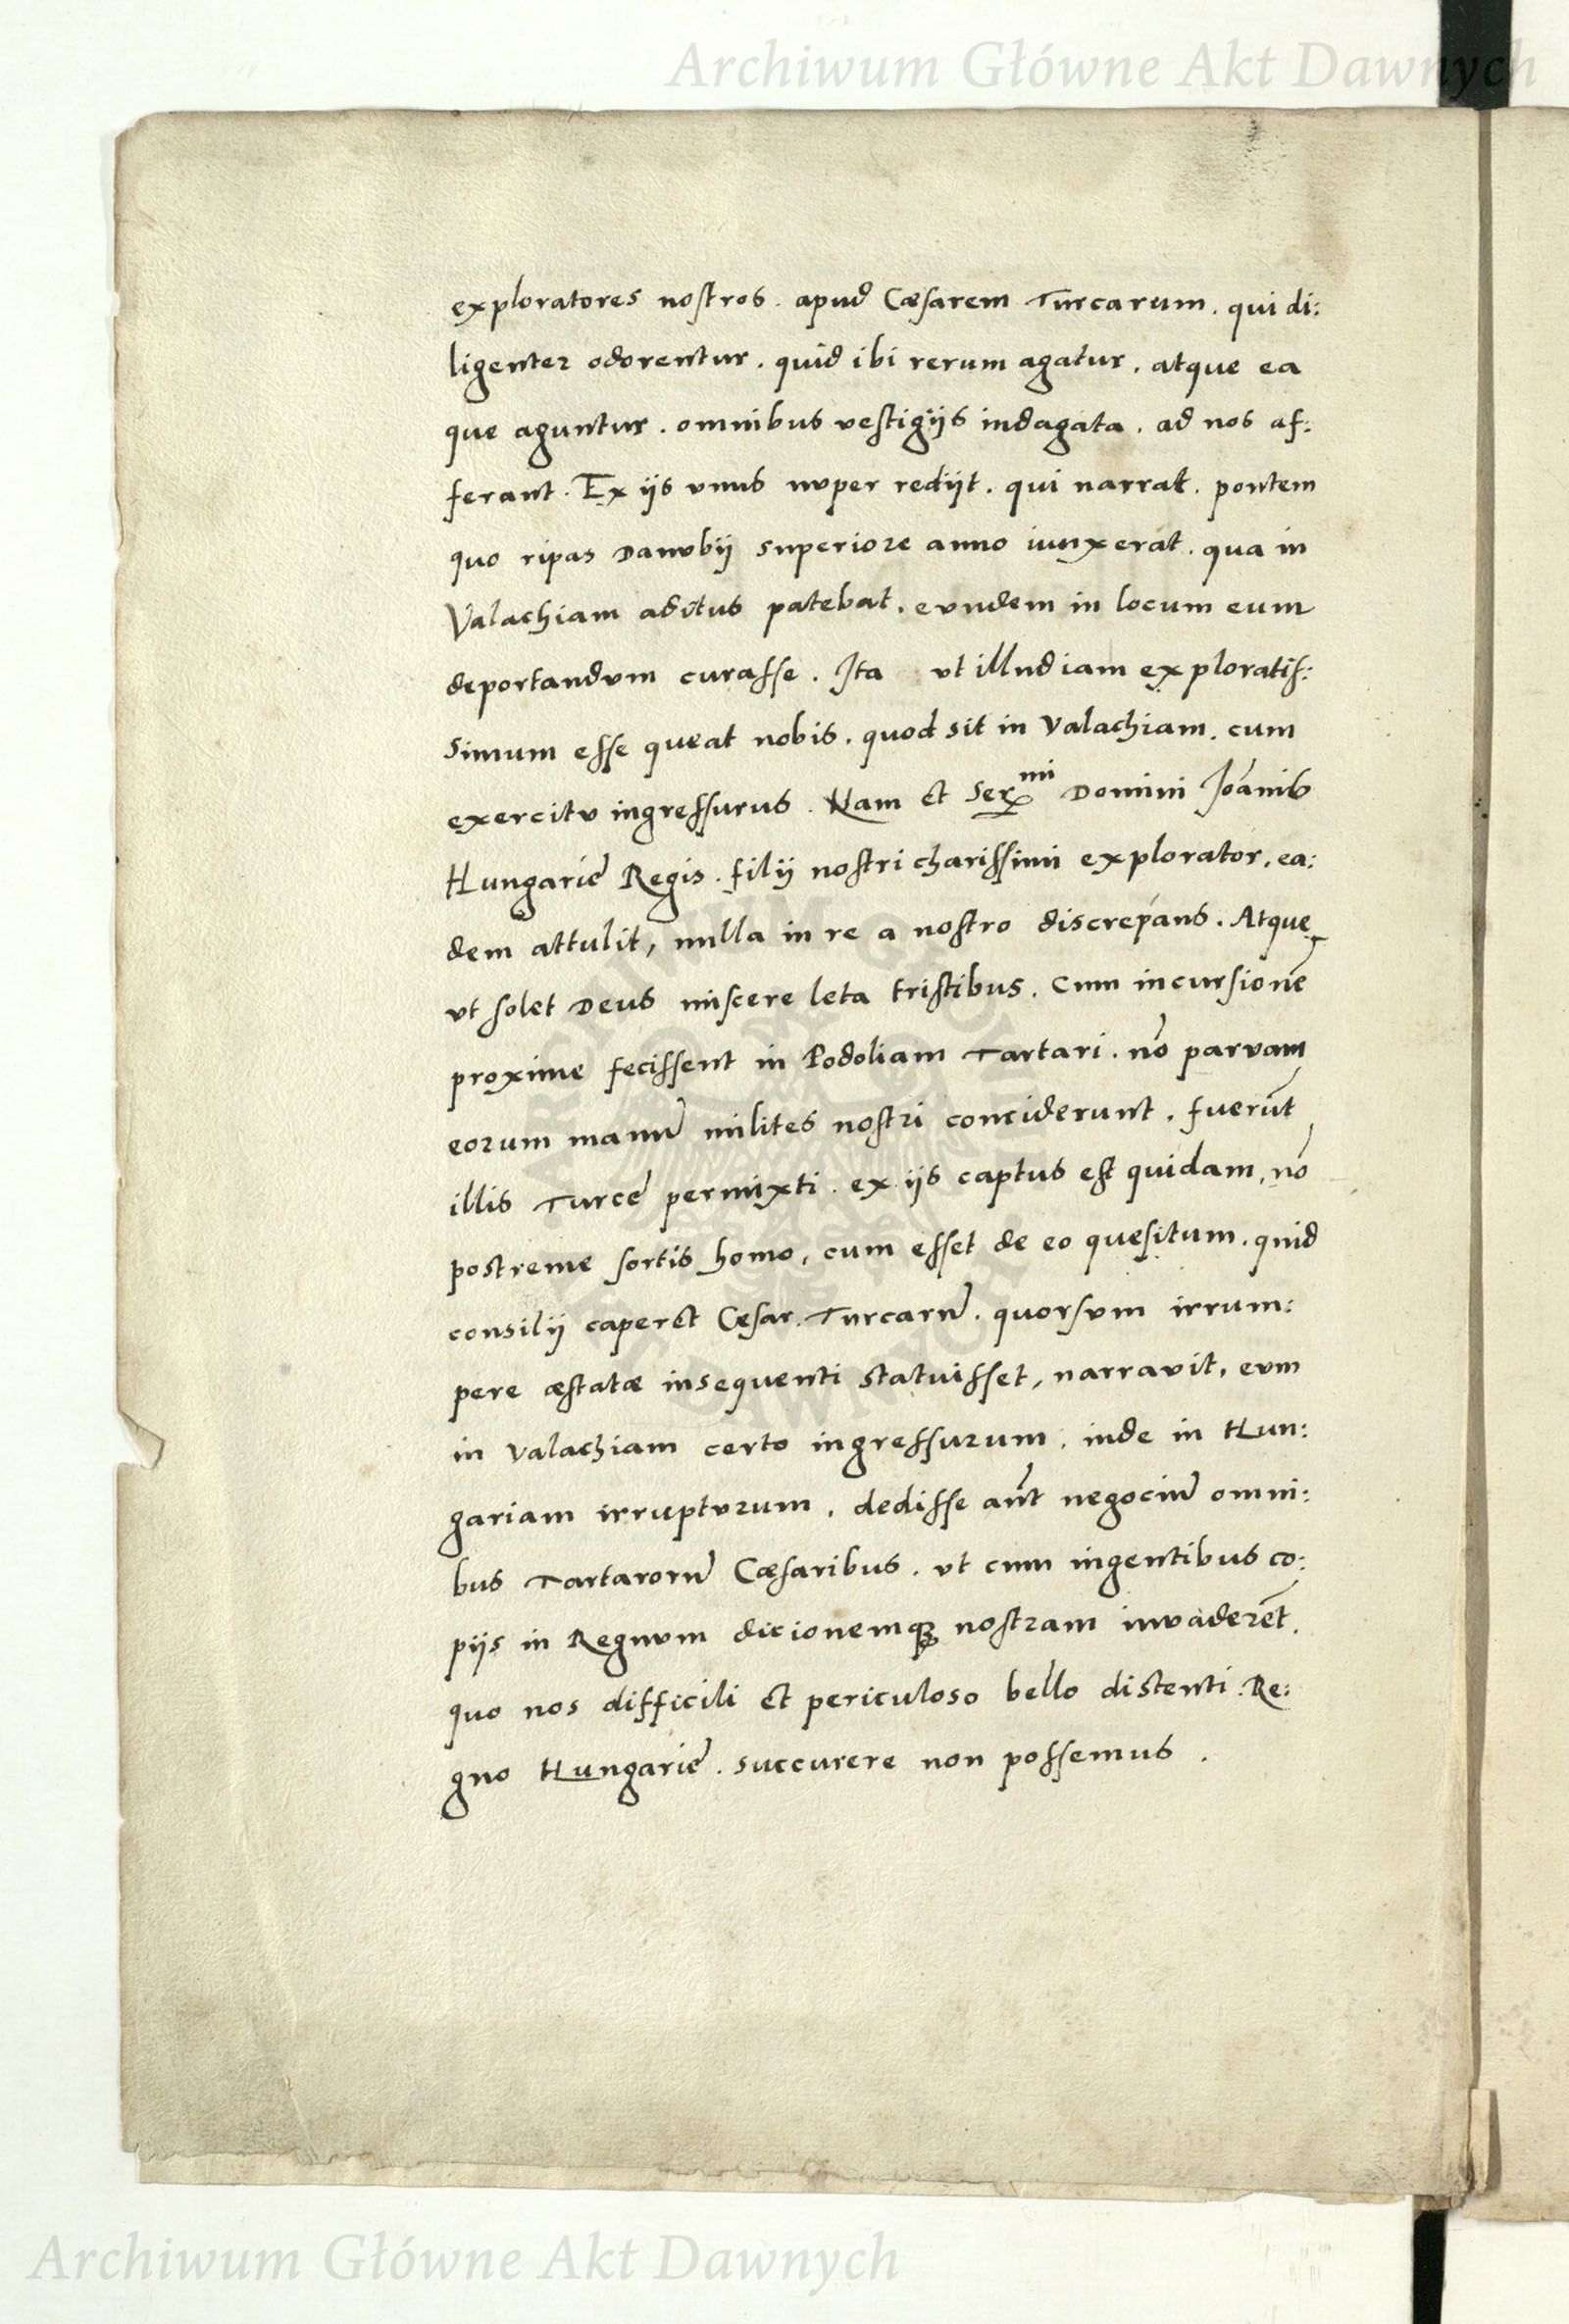 Archiwum Główne Akt Dawnych
exploratores nostros. apud Cæsarem Turcarum. qui di:
ligenter odorentur. quid ibi rerum agatur, atque ea
que aguntur. omnibus vestigijs indagata. ad nos af:
ferant. Ex ijs vnus nvper redijt. qui narrat. pontem
quo ripas Danvbij superiore anno iunxerat. qua in
Valachiam aditus patebat. evndem in locum eum
deportandvm curasse. Ita vt illud iam exploratis:
simum esse queat nobis. quod sit in Valachiam. cum
exercitv ingressurus. Nam et Ser.mi Domini Joānis
Hungarie Regis. filij nostri charissimi explorator, ea:
dem attulit, nulla in re a nostro discrepans. Atque
vt solet Deus miscere leta tristibus. Cum incursionē
proxime fecissent in Podoliam Tartari. nō parvam
eorum manū milites nostri conciderunt. fuerūt
illis Turce permixti. ex ijs captus est quidam, nō
postreme sortis homo, cum esset de eo quesitum. quid
consilij caperet Cesar. Turcarū. quorsvm irrum:
pere æstatæ insequenti statuisset, narravit, evm
in Valachiam certo ingressurum, inde in Hun:
gariam irruptvrum, dedisse aūt negociū omni:
bus Tartarorū Cæsaribus. vt cum ingentibus co:
pijs in Regnvm dicionemq; nostram invaderēt.
quo nos difficili et periculoso bello distenti. Re:
gno Hungarie. succurere non possemus.
Archiwum Główne Akt Dawnych